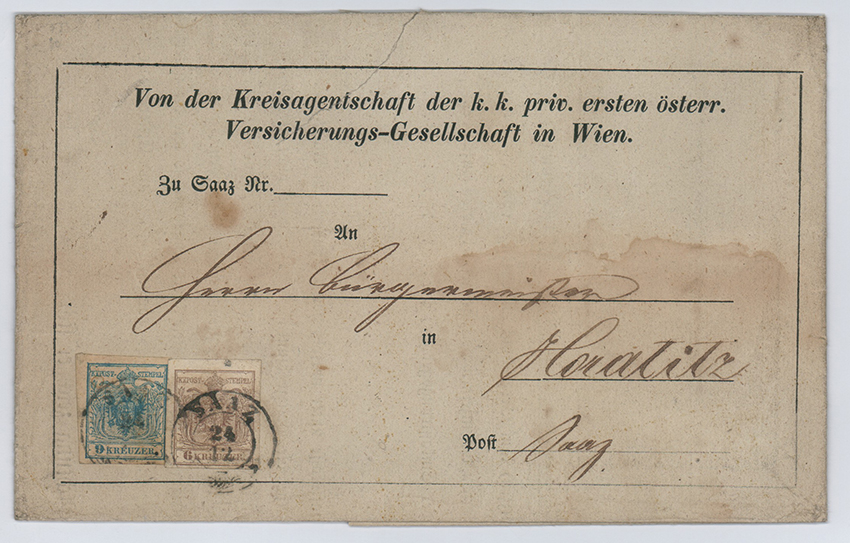 Von der Kreisagentschaft der k. k. priv. ersten österr.
Versicherungs-Gesellschaft in Wien.
Zu Saaz Nr.
An
Herrn Bürgermeister
in
Horatitz
Post Saaz
K.K.POST-STEMPEL
9 KREUZER
K.K.POST-STEMPEL
6 KREUZER
SAAZ
24
12